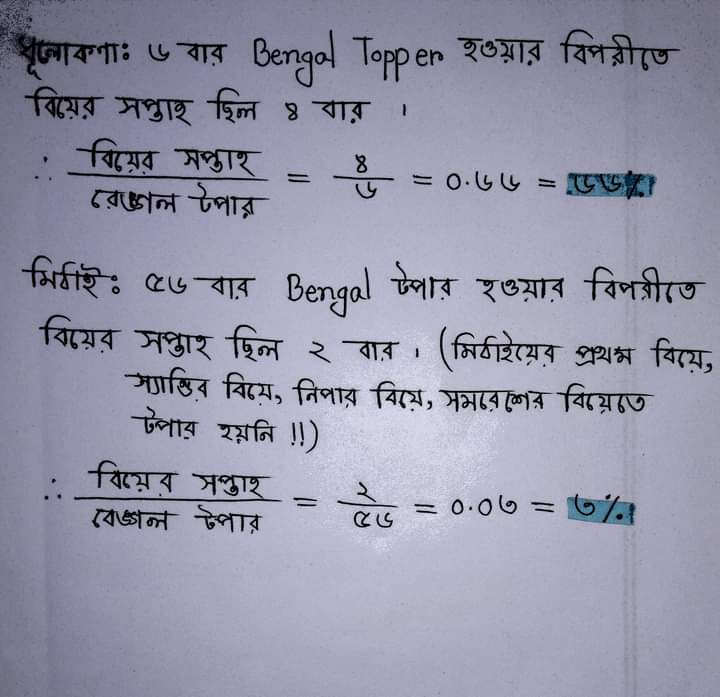 ধূলোকণাঃ ৬ বার Bengal Topper হওয়ার বিপরীতে
বিয়ের সপ্তাহ ছিল ৪ বার ।
∴ বিয়ের সপ্তাহ / বেঙ্গল টপার = ৪/৬ = ০.৬৬ = ৬৬%
মিঠাইঃ ৫৬ বার Bengal টপার হওয়ার বিপরীতে
বিয়ের সপ্তাহ ছিল ২ বার । (মিঠাইয়ের প্রথম বিয়ে,
স্যান্ডির বিয়ে, নিপার বিয়ে, সমরেশের বিয়েতে
টপার হয়নি !!)
∴ বিয়ের সপ্তাহ / বেঙ্গল টপার = ২/৫৬ = ০.০৩ = ৩%